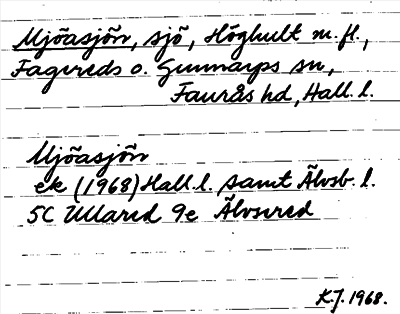 Mjöasjön, sjö, Höghult m.fl.,
Fagereds o. Gunnarps sn,
Faurås hd, Hall. l.
Mjöasjön
ek (1968) Hall. l. samt Älvsb. l.
5C Ullared 9e Älvsered
K.J. 1968.